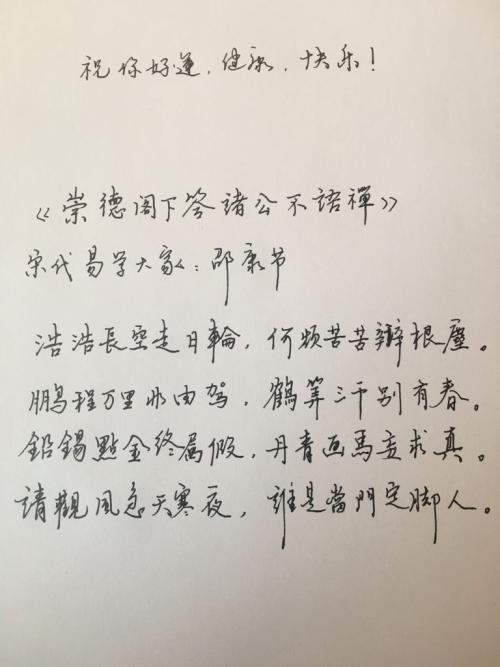 祝你好运，健康，快乐！
《崇德阁下答諸公不語禪》
宋代易学大家：邵康节
浩浩長空走日輪，何煩苦苦辨根塵。
鵬程万里非由駕，鶴筭三千别有春。
鉛錫點金終屬假，丹青画馬妄求真。
請觀风急天寒夜，誰是當門定脚人。